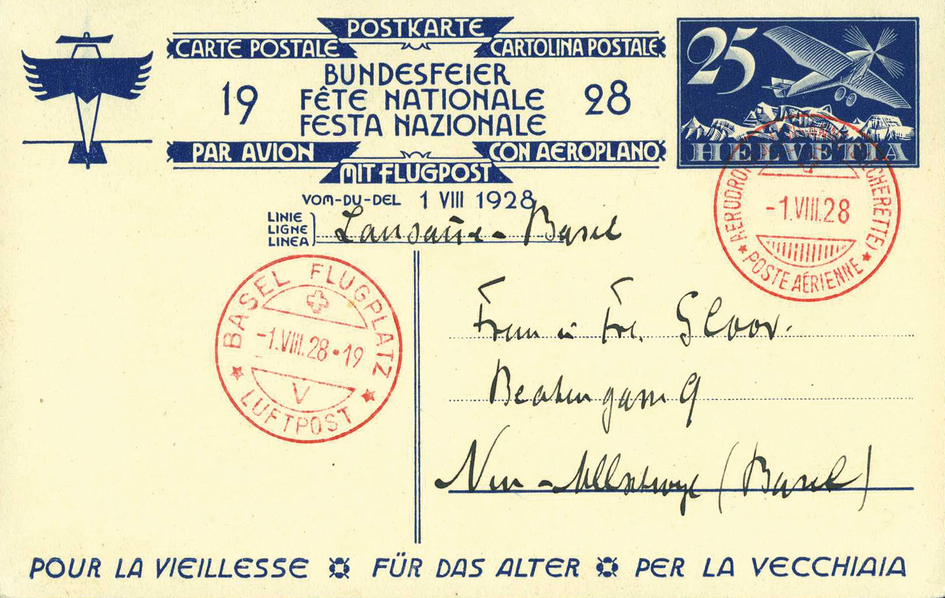 POSTKARTE
CARTE POSTALE CARTOLINA POSTALE
BUNDESFEIER
19 FÊTE NATIONALE 28
FESTA NAZIONALE
PAR AVION CON AEROPLANO
MIT FLUGPOST
25
HELVETIA
VOM-DU-DEL 1 VIII 1928
LINIE
LIGNE
LINEA
Lausanne - Basel
-1.VIII.28
POSTE AÉRIENNE
BASEL FLUGPLATZ
-1.VIII.28·19
V
LUFTPOST
Gloor.
9
(Basel)
POUR LA VIEILLESSE FÜR DAS ALTER PER LA VECCHIAIA